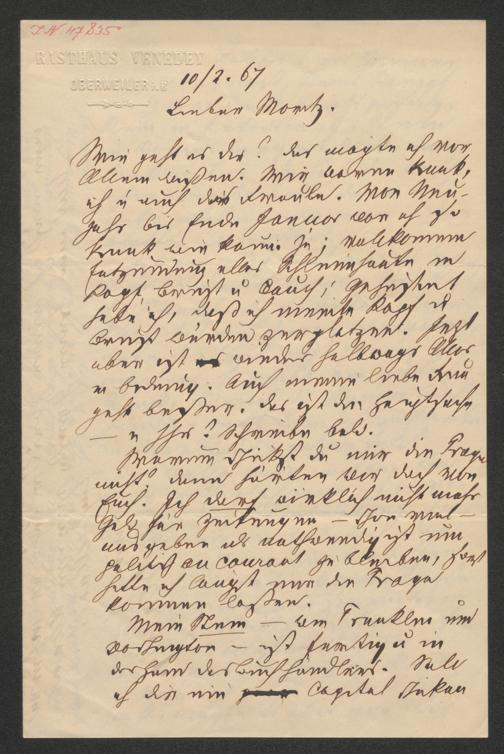 I.N. 47835
RASTHAUS VENEDEY
OBERWEILER
10/2. 67
Lieber Moritz.
Wie geht es dir? das mögte ich vor
Allem wissen. Wir waren krank,
ich u auch das Fraule. Von Neu-
jahr bis Ende Januar war ich so
krank wie kaum je; vollkommene
Entzündung aller Schleimhäute in
Kopf Brust u Bauch; gehustet
habe ich, daß ich meinte Kopf u
Brust würden zerplatzen. Jetzt
aber ist wieder halbwegs Alles
in Ordnung. Auch meine liebe Frau
geht besser. das ist die Hauptsache
— u Ihr? Schreibe bald.
Warum schickst du mir die Presse
nicht? dann hörten wir doch von
Euch. Ich darf wirklich nicht mehr
Geld für Zeitungen —
ausgeben als nothwendig ist um
politisch au courant zu bleiben, sonst
hätte ich längst mir die Presse
kommen laßen.
Mein Stein — wie Franklin und
Washington — ist fertig u in
der Hand des Buchhändlers. Soll
ich dir ein Capitel schicken